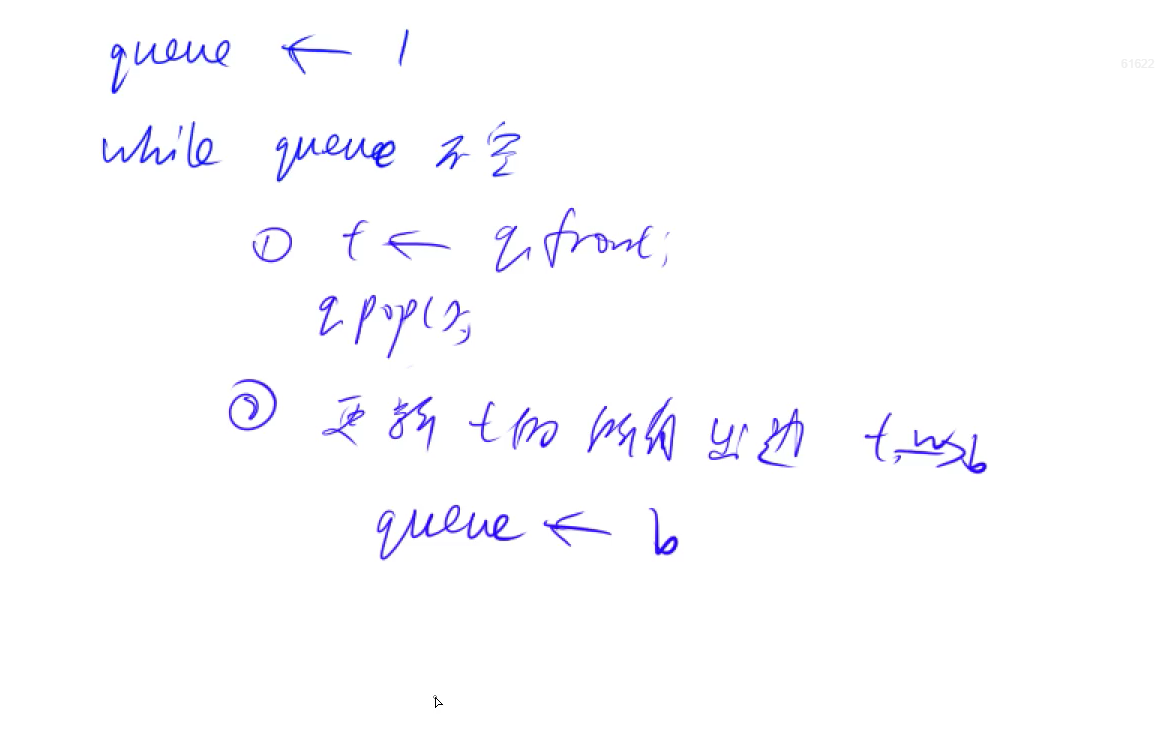 queue ← 1
61622
while queue 不空
① t ← q.front;
q.pop();
② 更新 t的所有出边 t w→ b
queue ← b